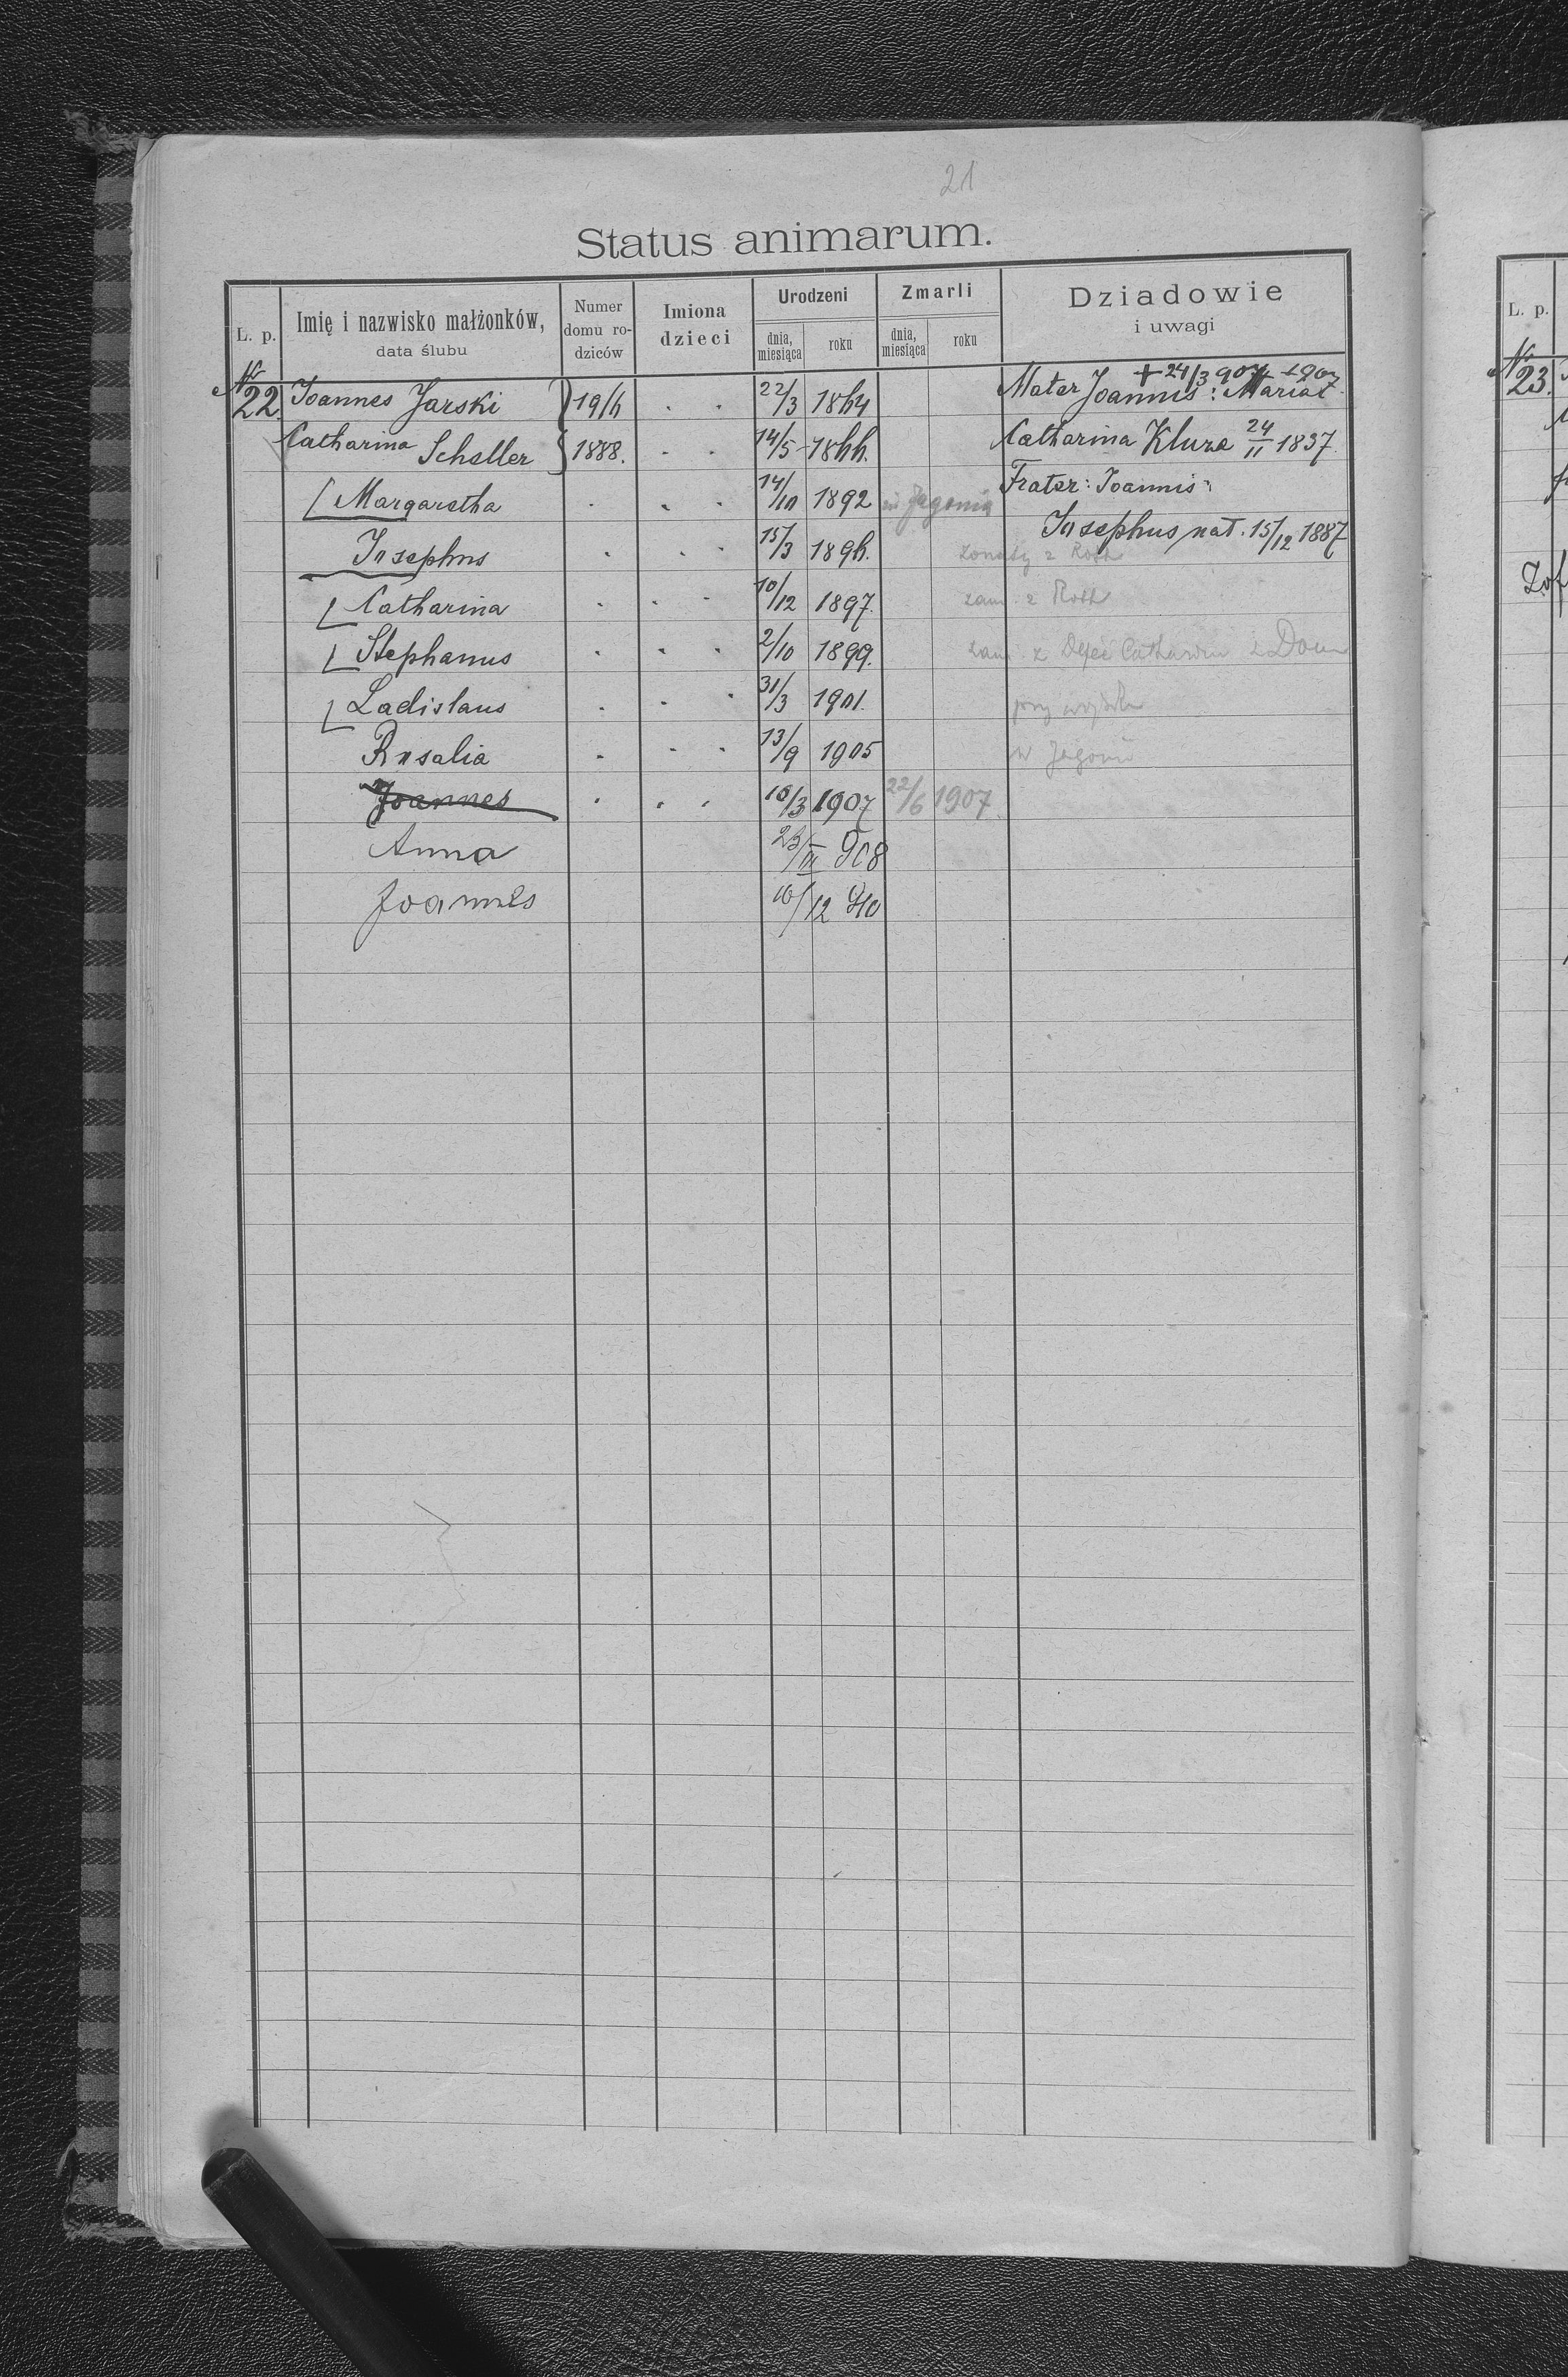 21
Status animarum.
L. p. Imię i nazwisko małżonków, data ślubu Numer domu rodziców Imiona dzieci Urodzeni dnia, miesiąca roku Zmarli dnia, miesiąca roku Dziadowie i uwagi
+ 24/3 907 + 907
№ 22 Joannes Jarski } 19/6 . . 22/3 1864 Mater Joannis: Mariae
Catharina Scheller } 1888. . . 14/5 1866. Catharina Kluza 24/II 1837.
Margaretha . . . 14/10 1892 Jagonia Frater: Joannis:
Josephus nat. 15/12 1887
Josephus . . . 15/3 1896. żonaty z Roth
Catharina . . . 10/12 1897. zam. z Roth
Stephanus . . . 2/10 1899. zam. z
Ladislaus . . . 31/3 1901. przy wojsku
Rosalia . . . 13/9 1905 w
Joannes . . . 10/3 1907 22/6 1907.
Anna 23/III 908
Joannes 10/12 910
L. p.
№ 23.
Zof